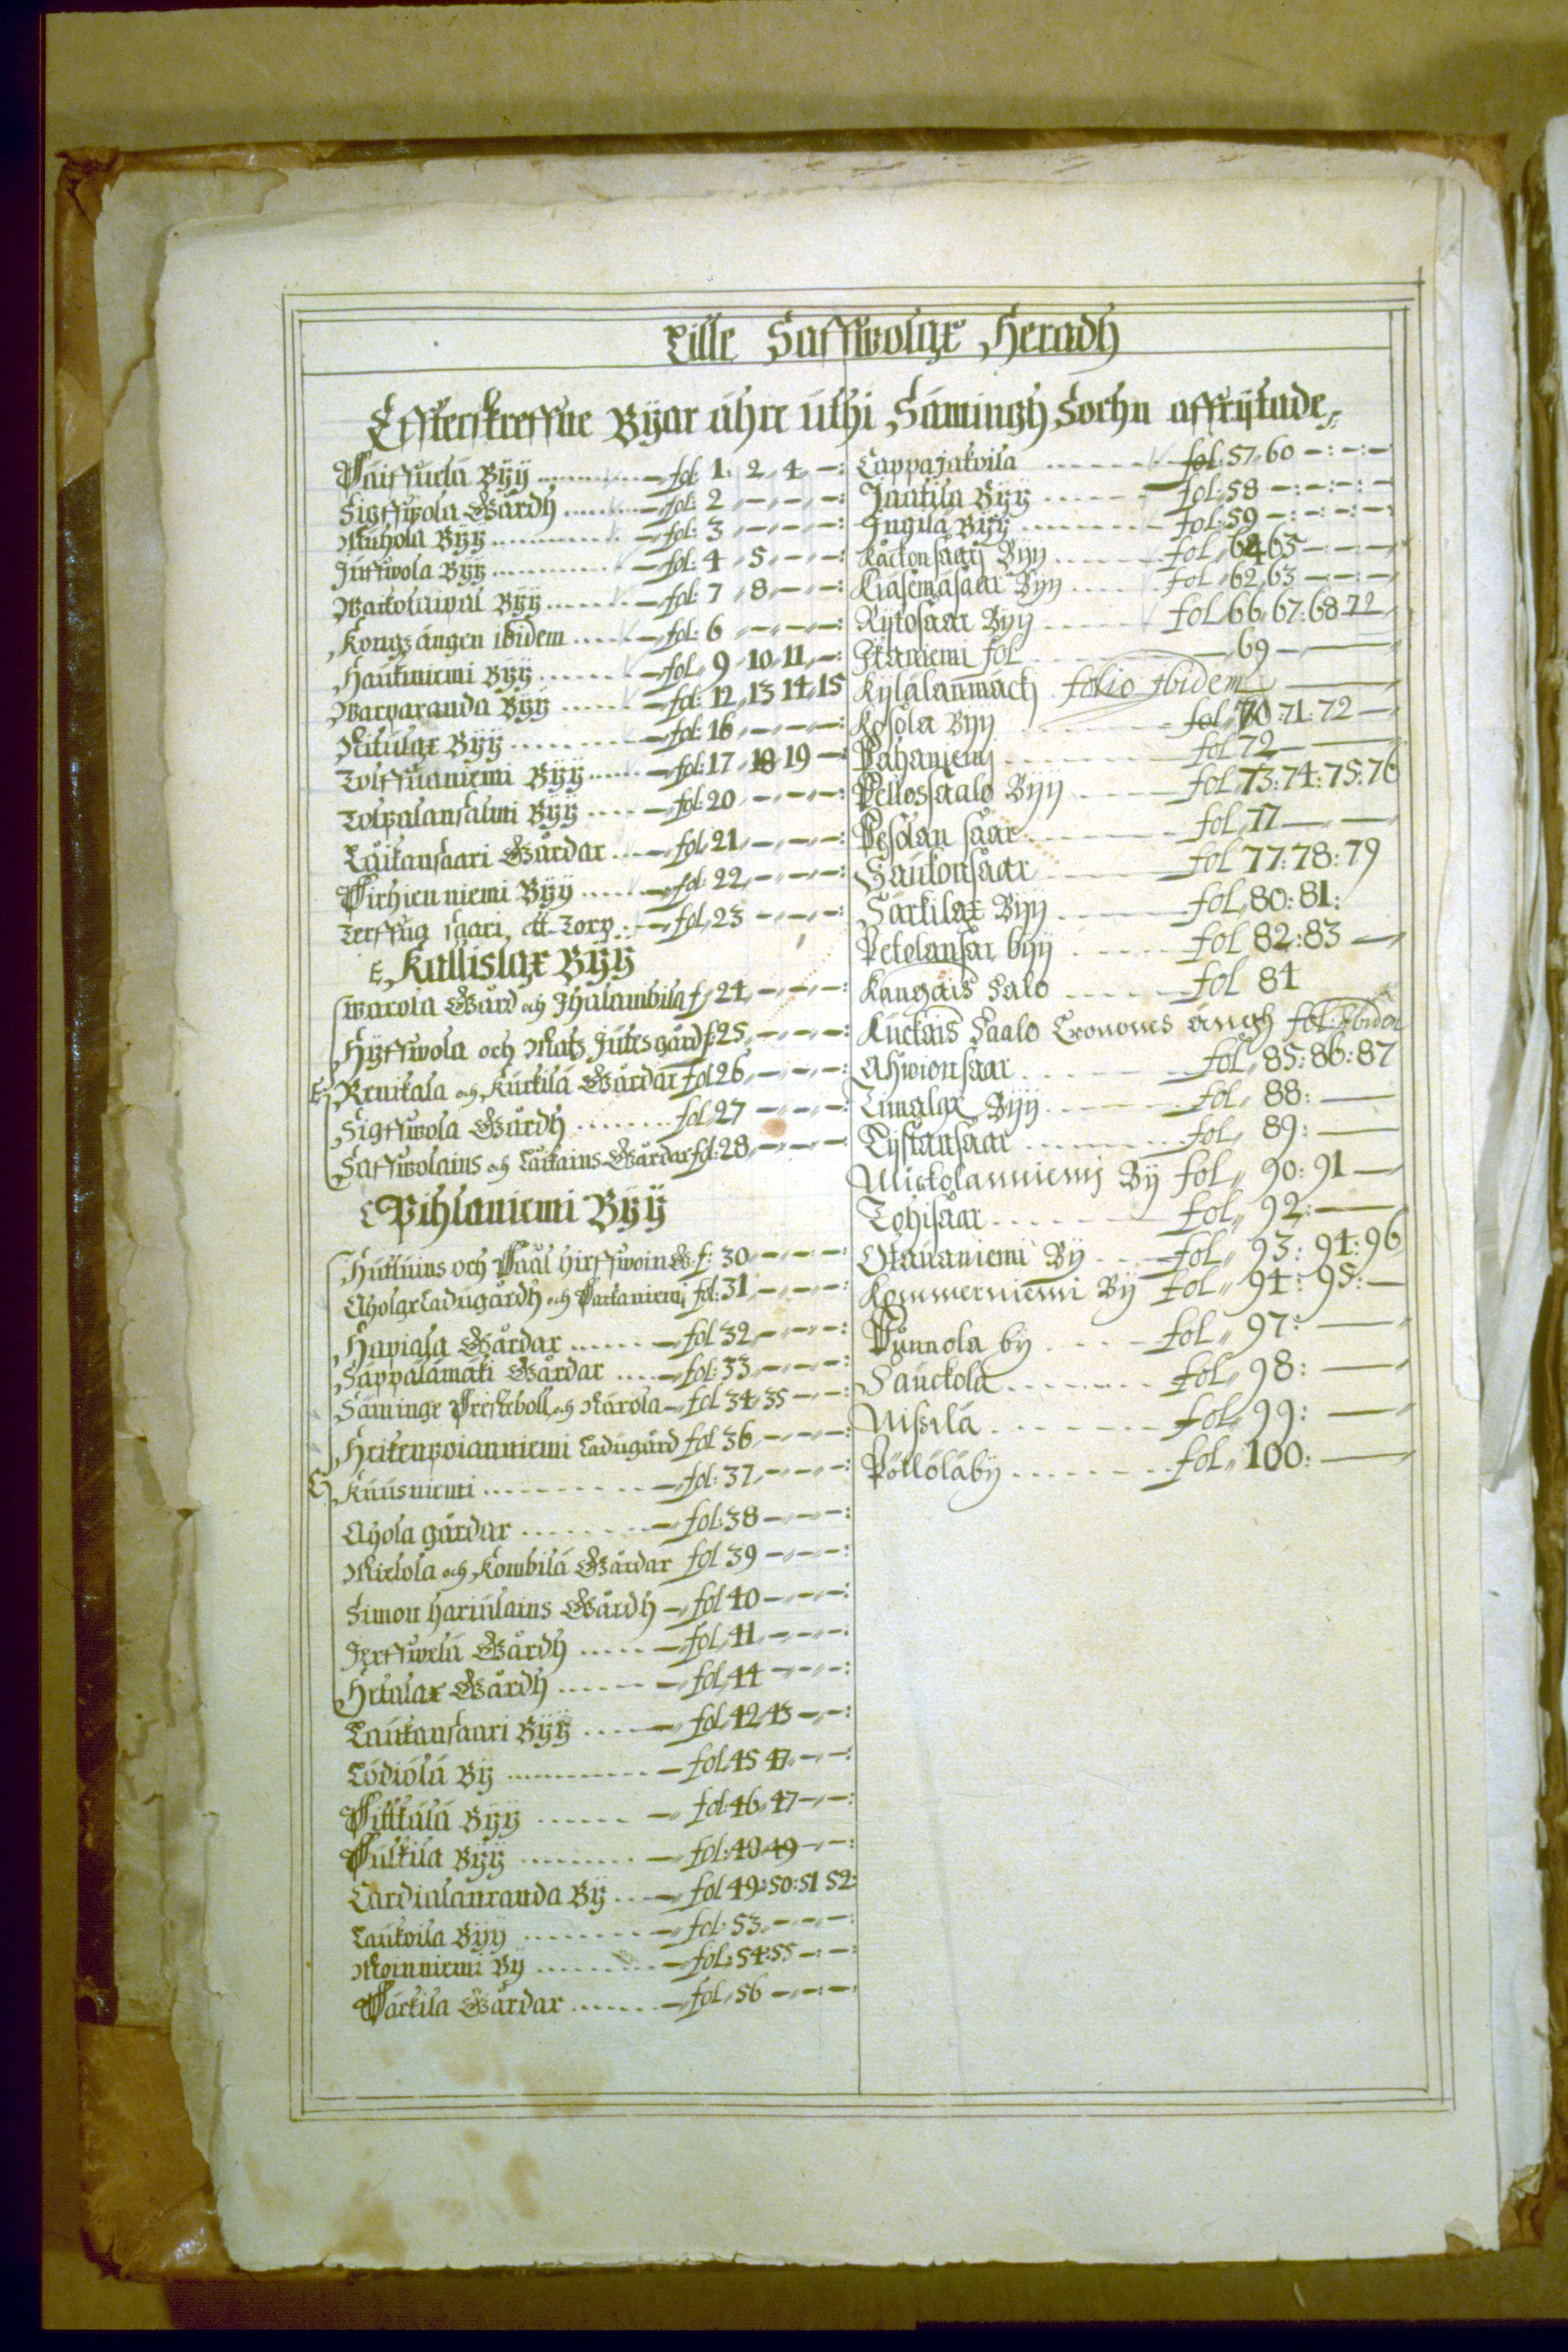 Lille Saffwolax Heradh
Effterskreffne Byar ähre uthi Sämingh Sochn affrijtade
Päiffuelä Bÿÿ fol: 1. 2. 4
Sigffwola Gårdh fol: 2
Muhola Bÿÿ fol: 3
Juffwola Bÿÿ fol: 4. 5
Warkolaipal Bÿÿ fol: 7. 8
Kongzängen ibidem fol: 6
Haukiniemi Bÿÿ fol. 9. 10. 11
Warparanda Bÿÿ fol: 12. 13 14. 15
Ritulax Bÿÿ fol: 16
Tolffuaniemi Bÿÿ fol: 17. 18 19
Tolpalansalmi Bÿÿ fol: 20
Läikansaari Gårdar fol. 21
Pirhien niemi Bÿÿ fol. 22
Terffua saari, ett Torp fol. 23
Kallislax Bÿÿ
Warola Gård och Ihalambila f. 24
Hÿffwola och Matz Jutes gård f: 25
Renikala och Kurkila Gårdar fol 26
Sigffwola Gårdh fol. 27
Saffwolains och Läikains Gårdar fol: 28
Pihlaniemi Bÿÿ
Huttuins och Paål Hirffwoin G. f: 30
Aholax Ladugårdh och Parkaniemj fol: 31
Hapiala Gårdar fol 32
Säppälämäki Gårdar fol: 33
Säminge Presteboll och Närola fol 34. 35
Heikenpoianniemi Ladugård fol 36
Kuusniemi fol: 37
Ahola gårdar fol: 38
Mickola och Kombilä Gårdar fol 39
Simon Hariulains Gårdh fol 40
Jerffwelä Gårdh fol. 41
Hetalax Gårdh fol. 44
Laukansaari Bÿÿ fol. 42. 43
Lödiölä Bÿ fol. 45 47
Pitkälä Bÿÿ fol: 46. 47
Pulkila Bÿÿ fol: 48 49
Lardialanranda Bÿ fol 49: 50: 51 52:
Laukoila Bÿÿ fol: 53
Moinniemi Bÿ fol: 54: 55
Päckila Gårdar fol. 56
Lappajakoila fol: 57. 60
Jaatila Bÿÿ fol: 58
Ingilä Bÿÿ fol: 59
Kackonsaarj Bÿÿ fol. 64 65
Kiäsemäsaar Bÿÿ fol. 62. 63
Rÿtosaar Bÿÿ fol 66. 67: 68. 72
Ikaniemi fol 69
Kÿlälänmäck folio ibidem
Kosola Bÿÿ fol. 70: 71: 72
Pahaniemj fol 72
Pellossaalo Bÿÿ fol. 73: 74: 75: 76
Pesolan saar fol. 77
Saukonsaar fol 77: 78: 79
Särkilax Bÿÿ fol. 80: 81:
Petelansar bÿÿ fol 82: 83
Kangais Salo fol 84
Kuckais Saalo Cronones ängh fol: Ibidem
Ahwionsaar fol. 85: 86: 87
Limalax Bÿÿ fol. 88:
Tÿstansaar fol. 89:
Mickolanniemj Bÿ fol. 90: 91
Tohisaar fol. 92:
Otauaniemi Bÿ fol. 93: 94: 96
Kommerniemi Bÿ fol. 94: 95:
Punnola bÿ fol. 97:
Sauckola fol. 98:
Nissilä fol. 99:
Pöllöläbÿ fol. 100: